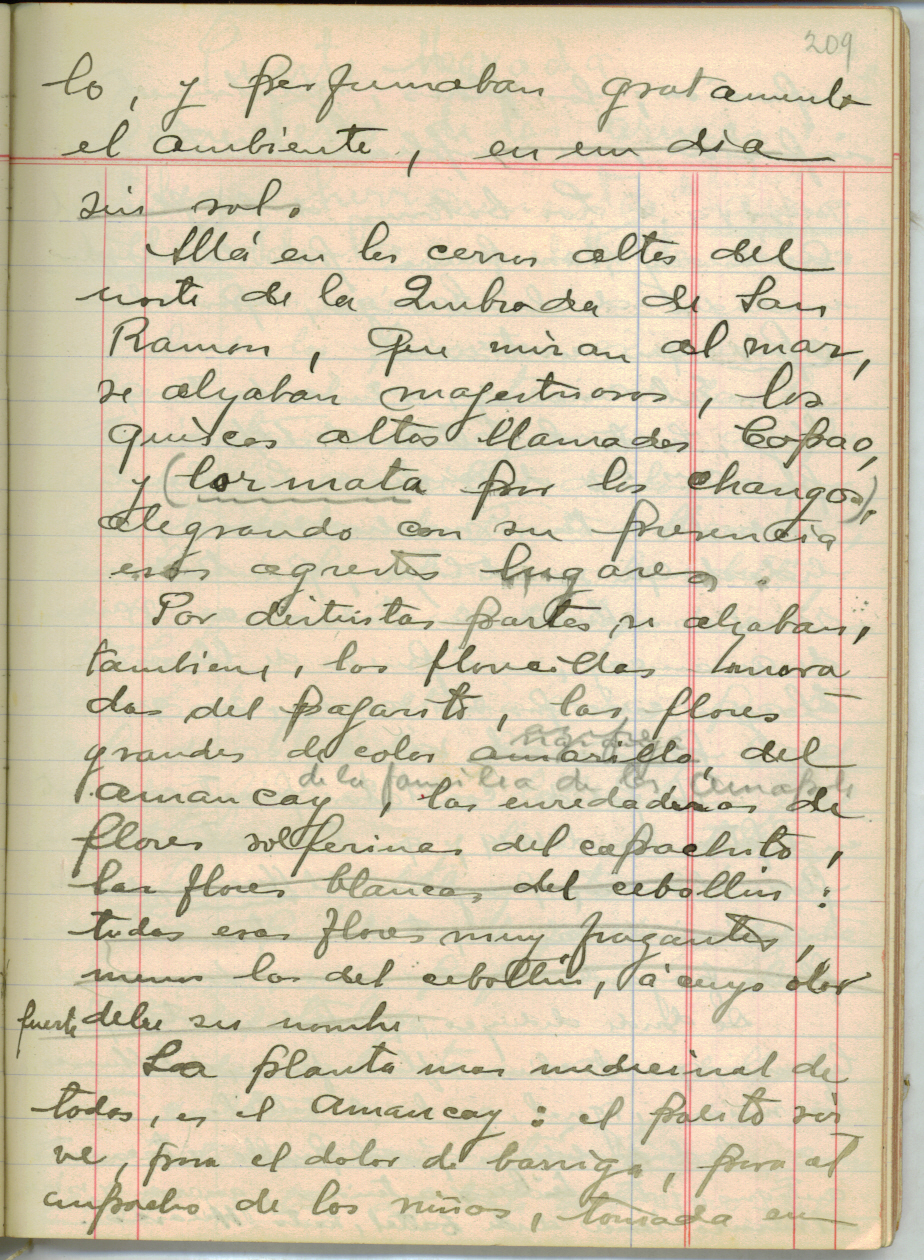 209
lo, y perfumaban gratamente
el ambiente, en un dia
sin sol.
Allá en los cerros altos del
norte de la Quebrada de San
Ramon, que miran al mar,
se alzaban magestuosos, los
quiscos altos llamados Copao,
y (lormata por los changos),
alegrando con su presencia
esos agrestes lugares.
Por distintas partes, se alzaban,
tambien, las florcillas mora
das del pajarito, las flores
grandes de color amarillo, del
de la familia de las
amancay, las enredaderas de
flores solferinas del capachito,
las flores blancas del cebollin:
todas esas flores muy fragantes,
menos las del cebollin, á cuyo olor
fuerte debe su nombre.
La planta mas medicinal de
todas, es el amancay: el palito sir
ve, para el dolor de barriga, para el
empacho de los niños, tomada en